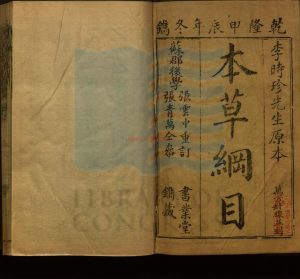 乾隆甲辰年冬鐫
李時珍先生原本
本草綱目
蘇郡後學
張雲中重訂
張青萬仝參
書業堂
鐫藏
LIBRARY OF
CONGRESS